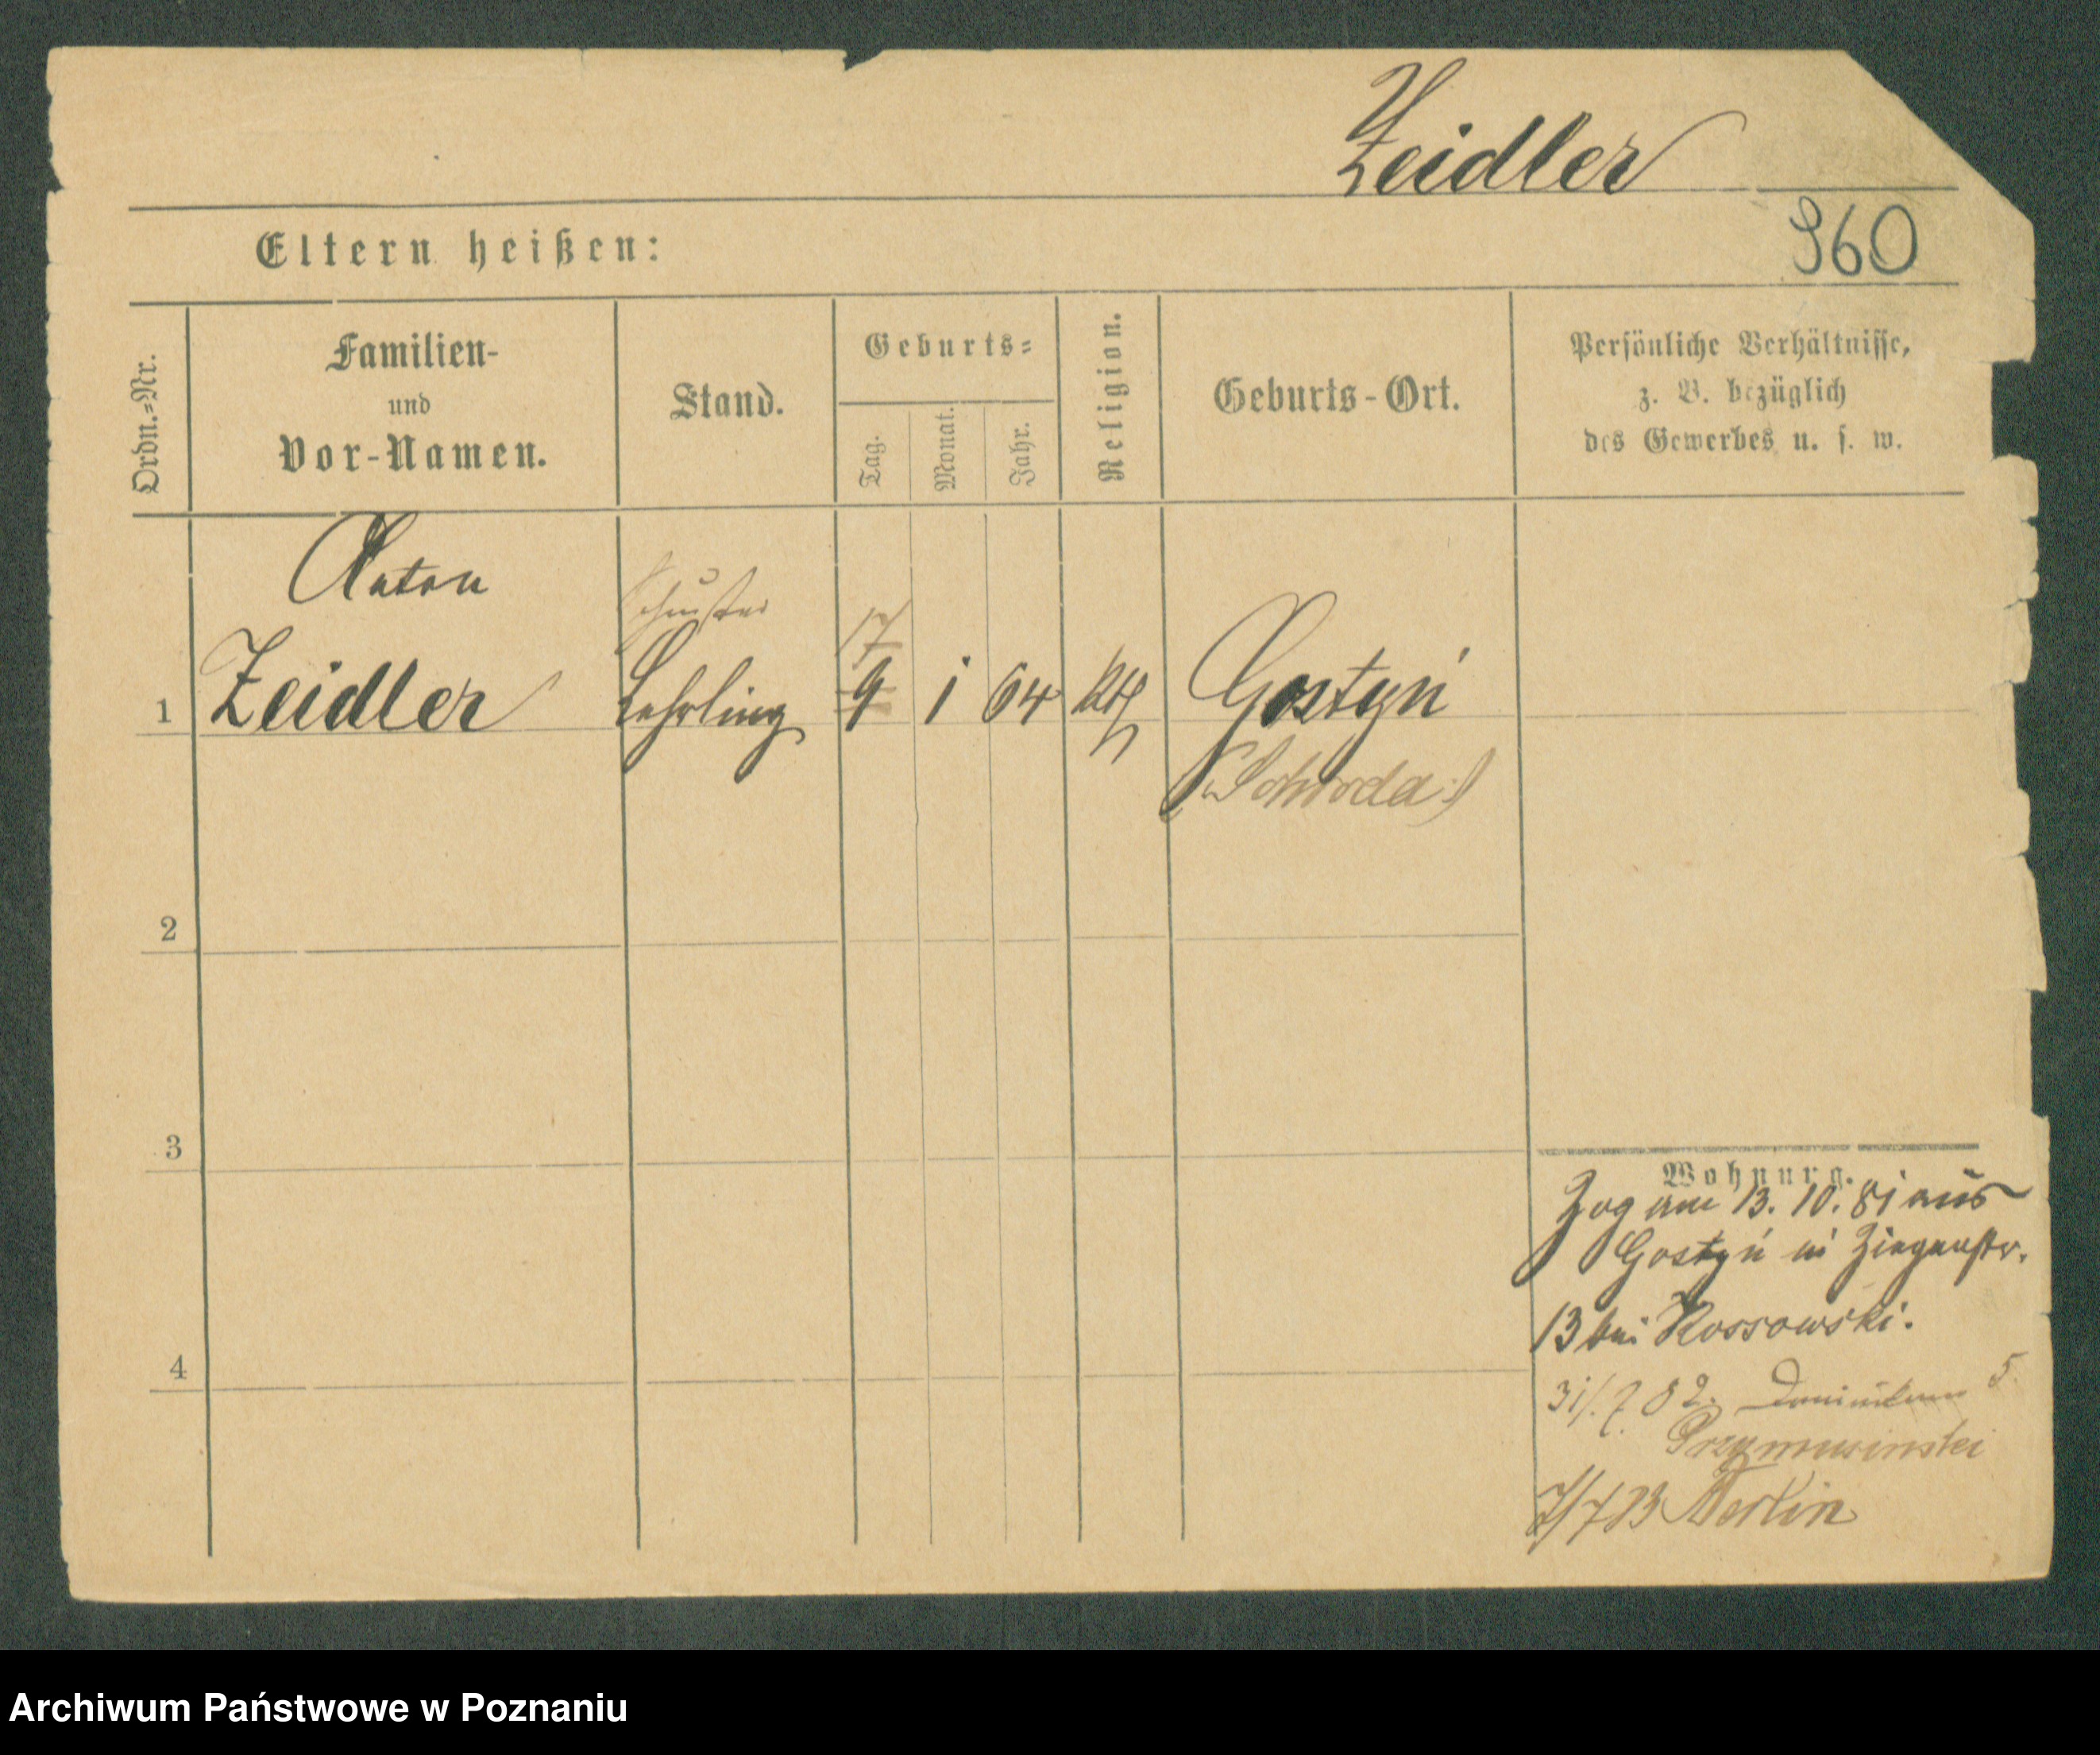 Zeidler
960
Eltern heißen:
Ordn.=Nr.
Familien-
und
Vor-Namen.
Stand.
Geburts=
Tag.
Monat.
Jahr.
Religion.
Geburts-Ort.
Persönliche Verhältnisse,
z. B. bezüglich
des Gewerbes u. s. w.
Anton
Schuster
17
1 Zeidler Lehrling 9 1 64 kth Gostyń
(Schroda)
2
3
4
Wohnung.
Zog am 13. 10. 81 aus
Gostyń in Ziegenstr.
13 bei Kossowski.
31/. 7 82. Dominikan 5.
Przymusinski
7/7 83 Berlin
Archiwum Państwowe w Poznaniu